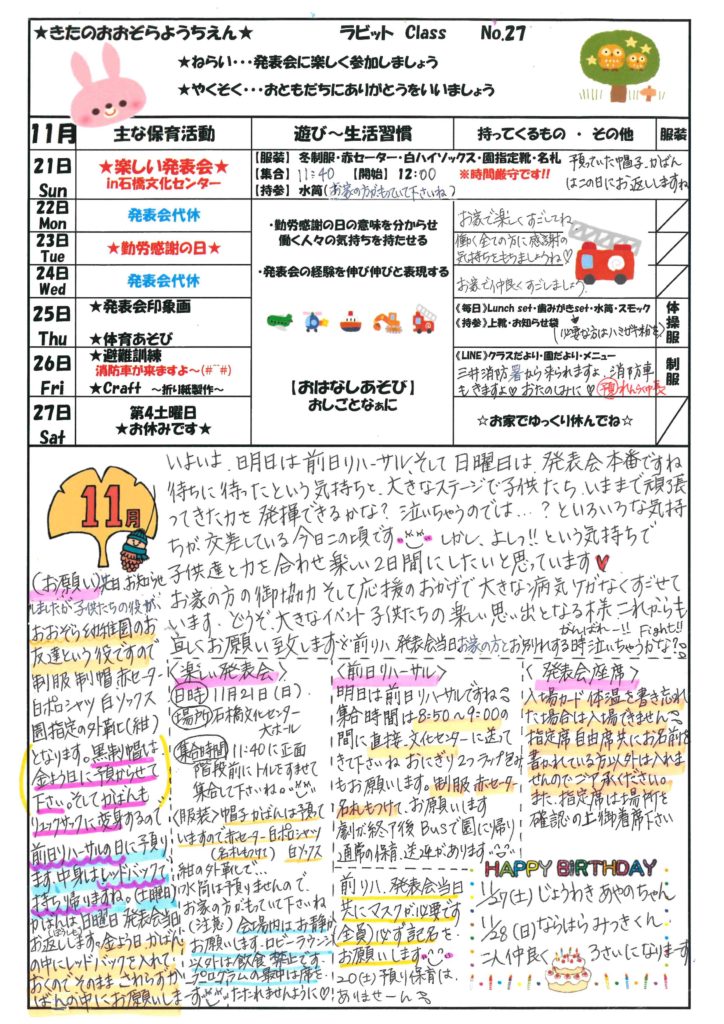 ★きたのおおぞらようちえん★ ラビット Class No.27
★ねらい・・・発表会に楽しく参加しましょう
★やくそく・・・おともだちにありがとうをいいましょう
11月 主な保育活動 遊び～生活習慣 持ってくるもの ・ その他 服装
21日 Sun
★楽しい発表会★
in石橋文化センター
【服装】 冬制服・赤セーター・白ハイソックス・園指定靴・名札
【集合】 11:40 【開始】 12:00 ※時間厳守です!!
【持参】 水筒(お家の方がもっていて下さいね)
預っていた帽子、かばん
はこの日にお返ししますね
22日 Mon
発表会代休
お家で楽しくすごしてね
23日 Tue
★勤労感謝の日★
働く全ての方に感謝の
気持ちをもちましょうね♡
24日 Wed
発表会代休
お家で仲良くすごしましょう
・勤労感謝の日の意味を分からせ
働く人々の気持ちを持たせる
・発表会の経験を伸び伸びと表現する
25日 Thu
★発表会印象画
★体育あそび
《毎日》Lunch set・歯みがきset・水筒・スモック
《持参》上靴・お知らせ袋
(必要な方はハミガキ粉を)
体操服
26日 Fri
★避難訓練
消防車が来ますよ～(#^^#)
★Craft ～折り紙製作～
【おはなしあそび】
おしごとなぁに
《LINE》クラスだより・園だより・メニュー
三井消防署から来られますよ。消防車
もきますよ♡おたのしみに♡ 預れんらく帳
制服
27日 Sat
第4土曜日
★お休みです★
☆お家でゆっくり休んでね☆
11月
いよいよ、明日は前日リハーサル、そして日曜日は、発表会本番ですね
待ちに待ったという気持ちと、大きなステージで子供たち、いままで頑張
ってきた力を発揮できるかな? 泣いちゃうのでは…?といろいろな気持
ちが交差している今日この頃です しかし、よしっ!!という気持ちで
子供達と力を合わせ楽しい2日間にしたいと思っています♥
お家の方の御協力そして応援のおかげで大きな病気、ケガなくすごせて
います。どうぞ大きなイベント子供たちの楽しい思い出となる様これからも
宜しくお願い致します
がんばれー!! Fight!!
前リハ、発表会当日お家の方とお別れする時泣いちゃうかな?
(お願い)先日、お知らせ
しましたが子供たちの役が、
おおぞら幼稚園のお
友達という役ですので
制服 制帽 赤セーター
白ポロシャツ 白ソックス
園指定の外靴(紺)
となります。黒制帽は、
金よう日に預からせて
下さい。そしてかばんも
リュックサックに変身するので
前日リハーサルの日に預り
ます。中身はレッドバックで
持ち帰りますね。(土曜日)
かばんは、日曜日 発表会当日
お返しします。金よう日 かばん
の中にレッドバックを入れて
おくので そのまま さわらずか
ばんの中にお願いします
〈楽しい発表会〉
日時 11月21日(日)
場所 石橋文化センター
大ホール
集合時間 11:40に正面
階段前にトイレをすませて
集合して下さいね。
〈服装〉帽子かばんは預って
いますので赤セーター白ポロシャツ
(名札もつけて) 白ソックス
紺の外靴で…
水筒は預りませんので、
お家の方がもっていて下さいね
〈注意〉会場内はお静かに
お願いします。ロビーラウンジ
以外は飲食禁止です
プログラムの最中は席を
たたれませんように♡
〈前日リハーサル〉
明日は前日リハーサルですね
集合時間は8:50～9:00の
間に直接、文化センターに送って
きて下さいね おにぎり2コラップ包み
もお願いします。制服 赤セーター
名札もつけて、お願いします
劇が終了後 Busで園に帰り
通常の保育、送迎があります。
前リハ、発表会当日
共にマスクが必要です
(全員)必ず記名を
お願いします。
20(土)預り保育は、
ありませーん
〈発表会座席〉
入場カード 体温を書き忘れ
た場合は入場できません
指定席自由席共にお名前を
書かれている方以外は入れま
せんのでご了承ください。
また、指定席は場所を
確認の上御着席下さい
HAPPY BIRTHDAY
11/27(土) じょうわき あやのちゃん
11/28(日) ならはら みつきくん
二人仲良く 3さいになります